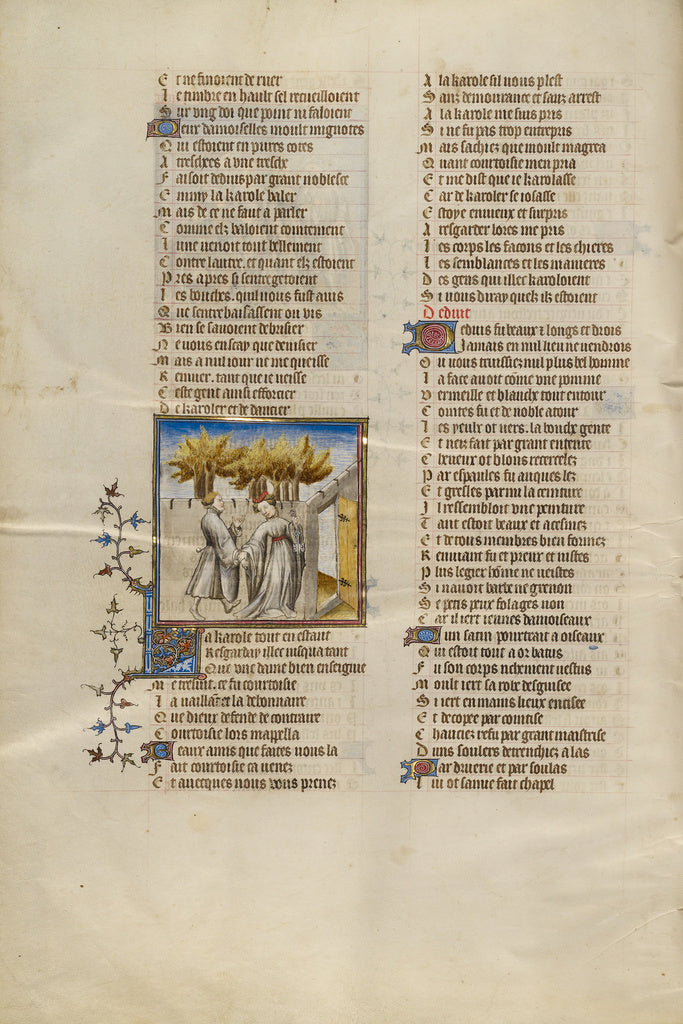 Et ne finoient de ruer
Le timbre en hault sel recueilloient
Sur ung doi que point ni faloient
Deux damoiselles moult mignotes
Qui estoient en pures cotes
A tresches a une tresche
Faisoit deduis par grant noblesce
Enmy la karole baler
Mais de ce ne faut a parler
Comme elz baloient cointement
Lune venoit tout bellement
Contre lautre. et quant elz estoient
Pres apres si sentregetoient
Les bouches. quil vous fust avis
Que sentrebaisassent ou vis
Bien se savoient debrisier
Ne vous en scay que devisier
Mais a nul iour ne me queisse
Remuer. tant que ie veisse
Ceste gent ainsi efforcier
De karoler et de dancier
La karole tout en estant
Resgarday illec iusqua tant
Que une dame bien enseignie
Me tresuit. ce fu courtoisie
La vaillant et la debonnaire
Que dieux defende de contraire
Courtoisie lors mapella
Beaux amis que faites vous la
Fait courtoisie ca venez
Et avecques nous vous prenez
A la karole sil vous plest
Sanz demourance et sanz arrest
A la karole me suis pris
Si ne fu pas trop entrepris
Mais sachiez que moult magrea
Quant courtoisie men pria
Et me dist que ie karolasse
Car de karoler se iosasse
Estoye envieux et surpris
A resgarder lores me pris
Les corps les facons et les chieres
Les semblances et les manieres
Des gens qui illec karoloient
Si vous diray quelz ilz estoient
Deduit
Deduis fu beaux et longs et drois
Jamais en nul lieu ne vendrois
Ou vous truissiez nul plus bel homme
La face avoit come une pomme
Vermeille et blanche tout entour
Cointes fu et de noble atour
Les yeulx ot vers. la bouche gente
Et nez fait par grant entente
Cheveux ot blons recercelez
Par espaules fu auques lez
Et gresles parmi la ceinture
Il ressembloit une peinture
Tant estoit beaux et acesmez
Et de tous membres bien formez
Remuant fu et preux et vistes
Plus legier home ne veistes
Si navoit barbe ne grenon
Se petis peux folages non
Car il iert ieunes damoiseaux
Dun satin pourtrait a oiseaux
Qui estoit tout a or batus
Fu son corps richement vestus
Moult iert sa robe desguisee
Si iert en mains lieux encisee
Et decopee par cointise
Chauciez refu par grant maistrise
Duns soulers detrenchiez a las
Par druerie et par soulas
Lui ot samie fait chapel